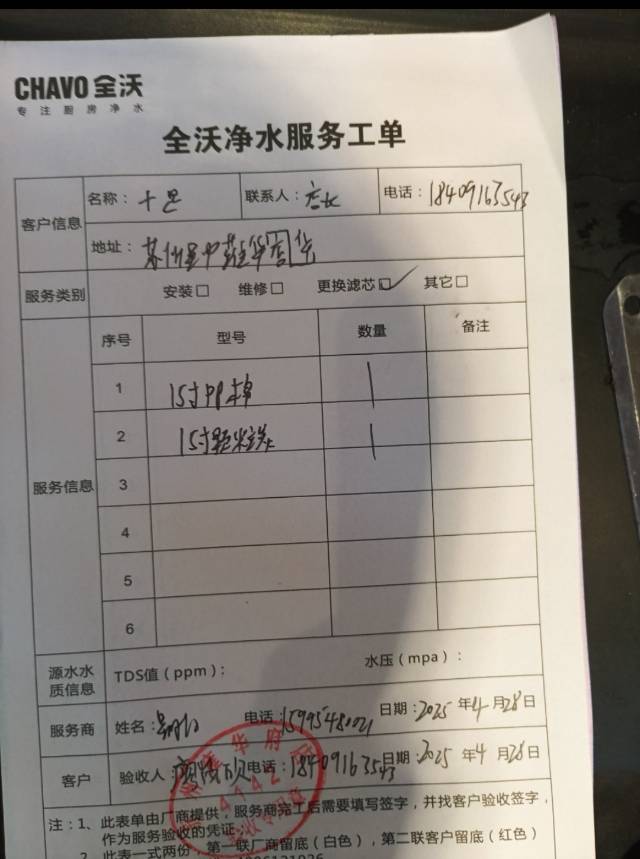 CHAVO 全沃
专注厨房净水
全沃净水服务工单
客户信息
名称：十足 联系人：店长 电话：18409163543
地址：苏州吴中
服务类别 安装□ 维修□ 更换滤芯☑ 其它□
服务信息
序号 型号 数量 备注
1 15寸PP棉 1
2 15寸颗粒炭 1
3
4
5
6
源水水质信息 TDS值（ppm）： 水压（mpa）：
服务商 姓名： 电话：15995480021 日期：2025年4月28日
客户 验收人： 电话：18409163543 日期：2025年4月28日
注：1、此表单由厂商提供，服务商完工后需要填写签字，并找客户验收签字，
作为服务验收的凭证；
2、此表一式两份，第一联厂商留底（白色），第二联客户留底（红色）